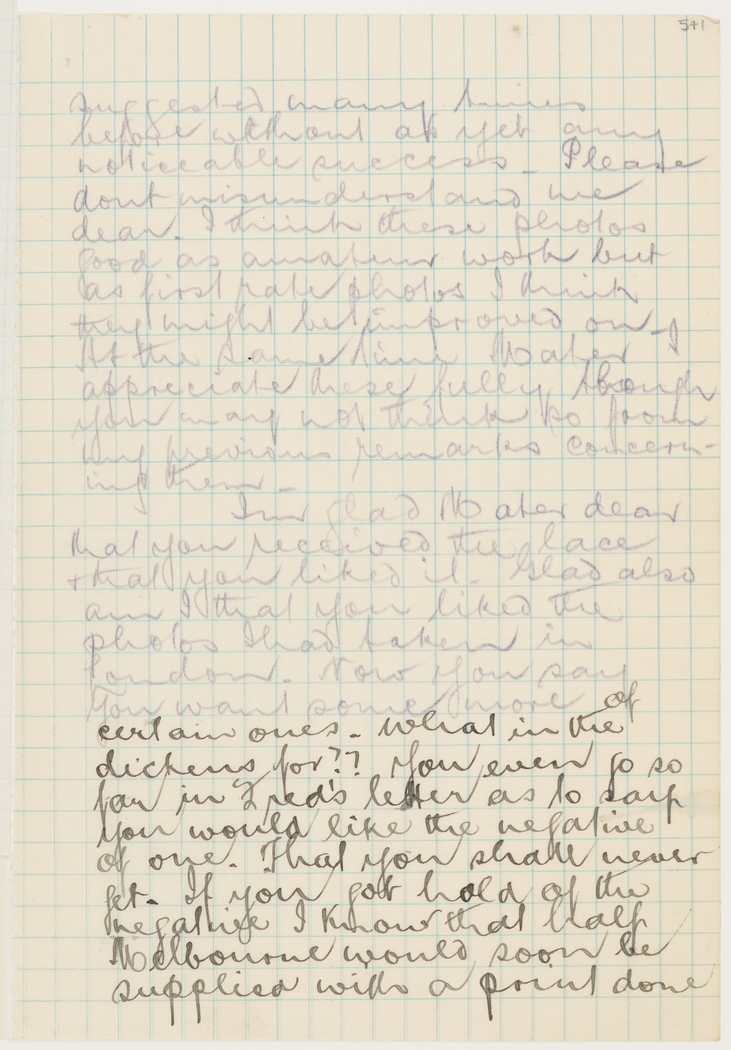 541
suggested many times
before without as yet any
noticeable success - Please
dont misunderstand me
dear. I think these photos
good as amateur work but
as first rate photos I think
they might be improved on -
At the same time Mater I
appreciate these fully though
you may not think so from
my previous remarks concern-
ing them -
I'm glad Mater dear
that you received the lace
+ that you liked it. Glad also
am I that you liked the
photos I had taken in
London. Now you say
you want some more of
certain ones - What in the
dickens for?? You even go so
far in Fred's letter as to say
you would like the negative
of one. That you shall never
get. If you got hold of the
negative I know that half
Melbourne would soon be
supplied with a print done